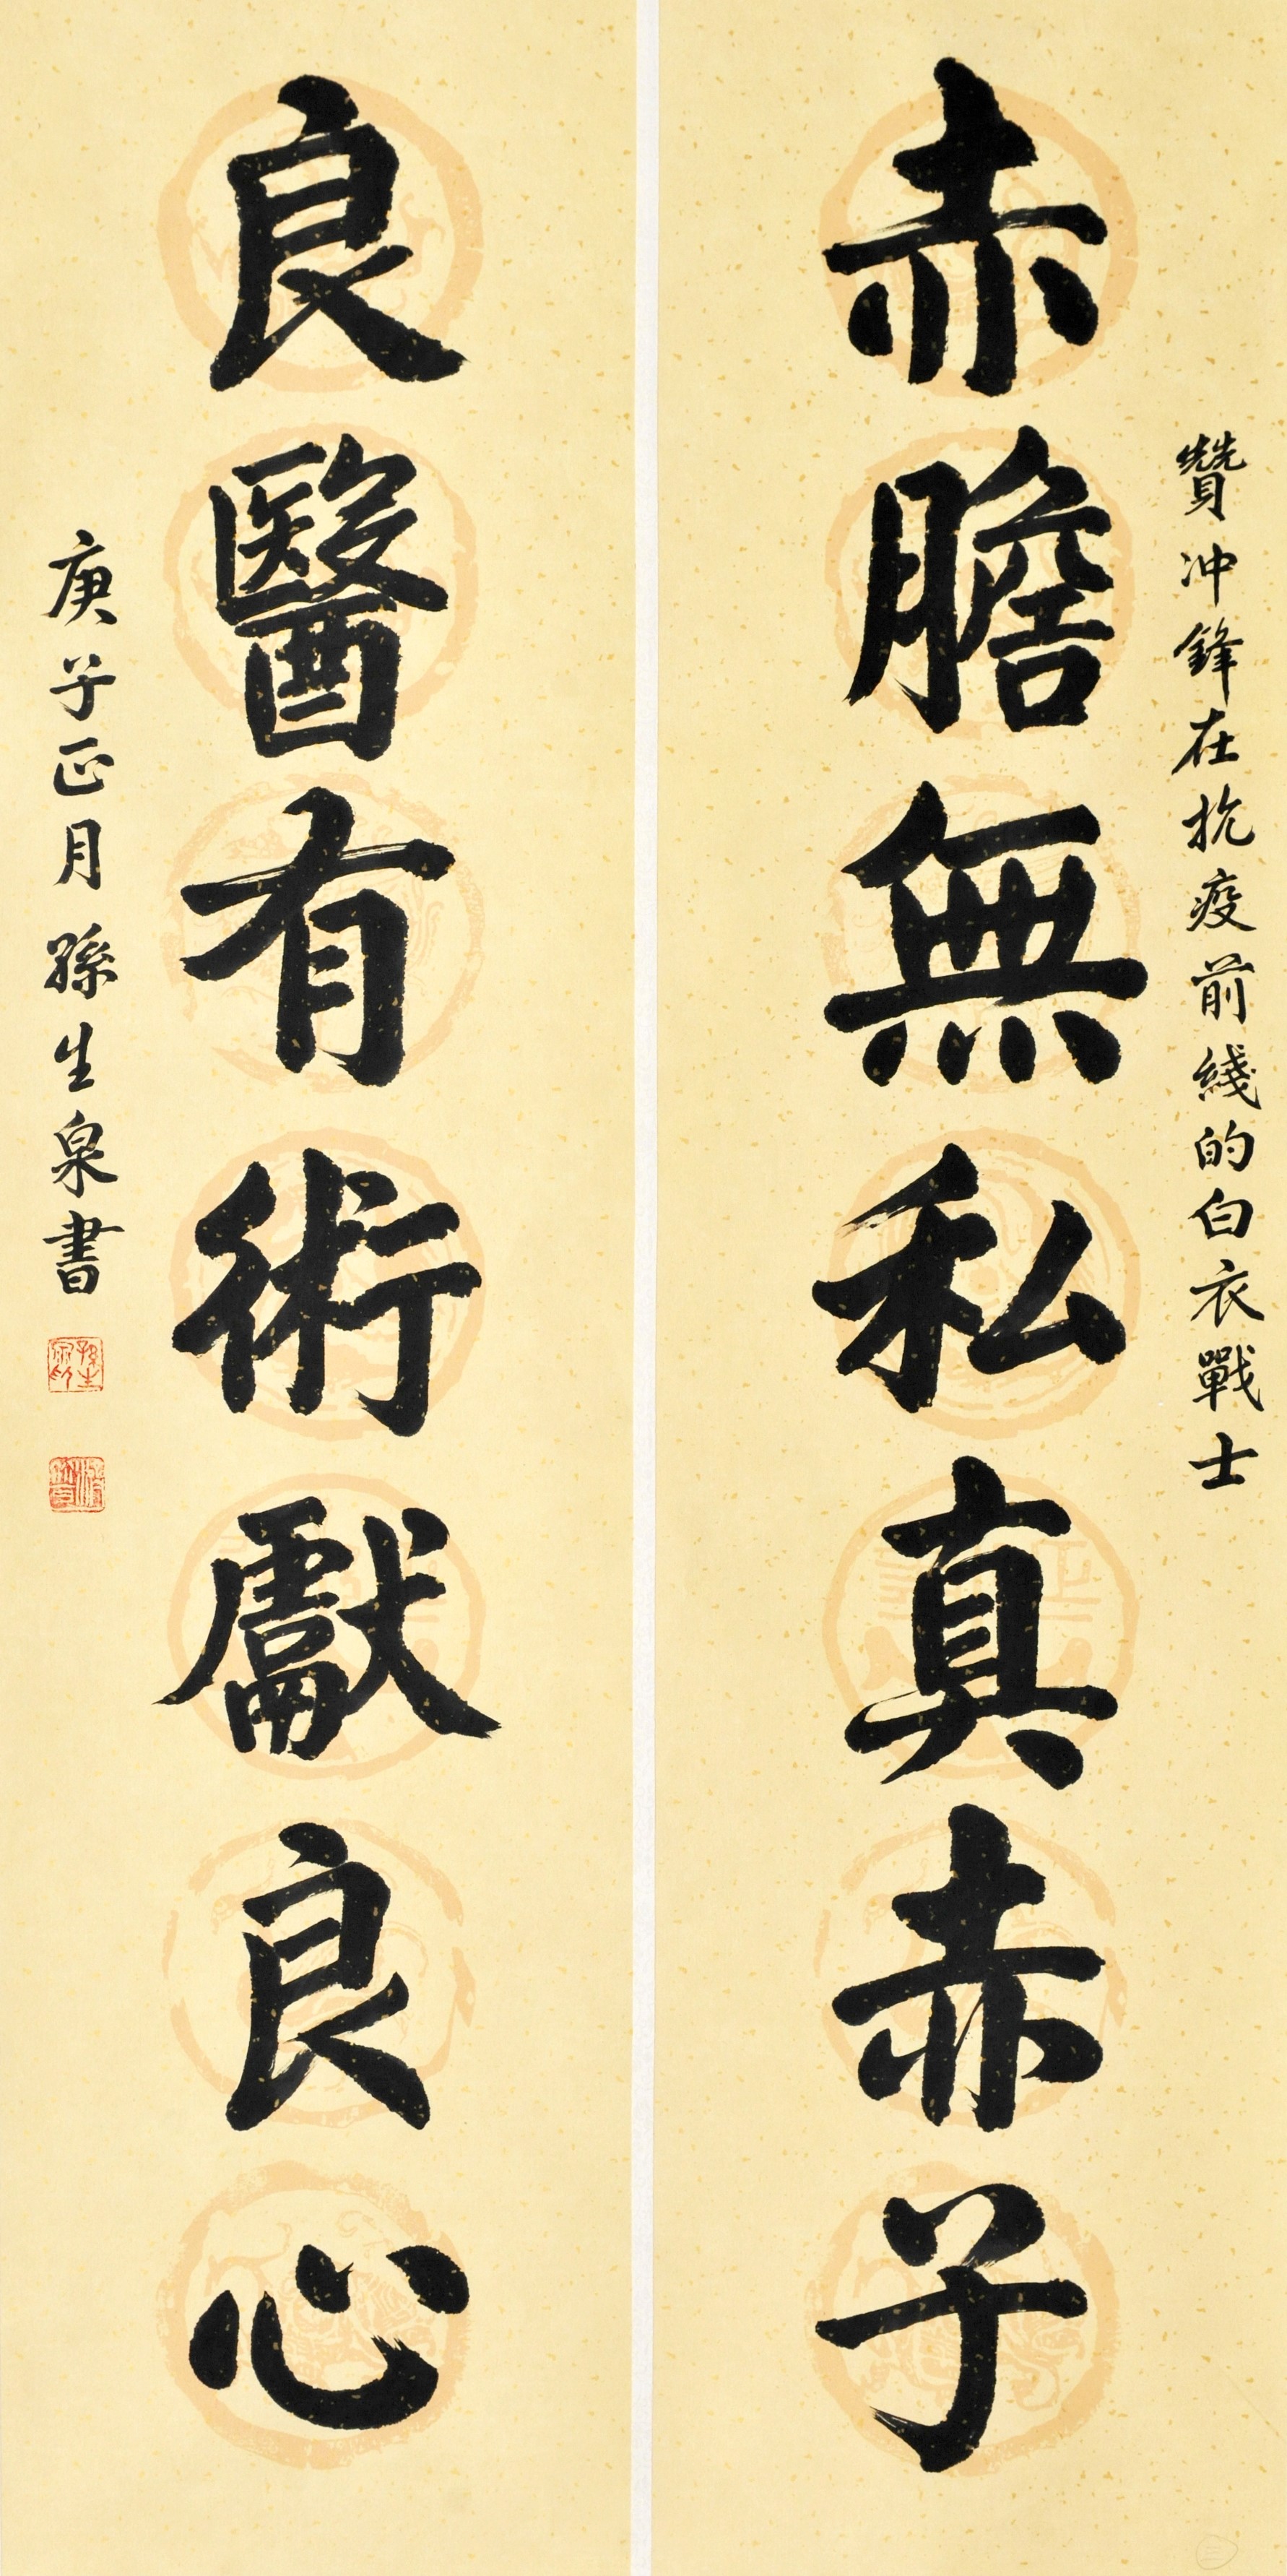 贊冲鋒在抗疫前綫的白衣戰士
赤膽無私真赤子
良醫有術獻良心
庚子正月孫生泉書